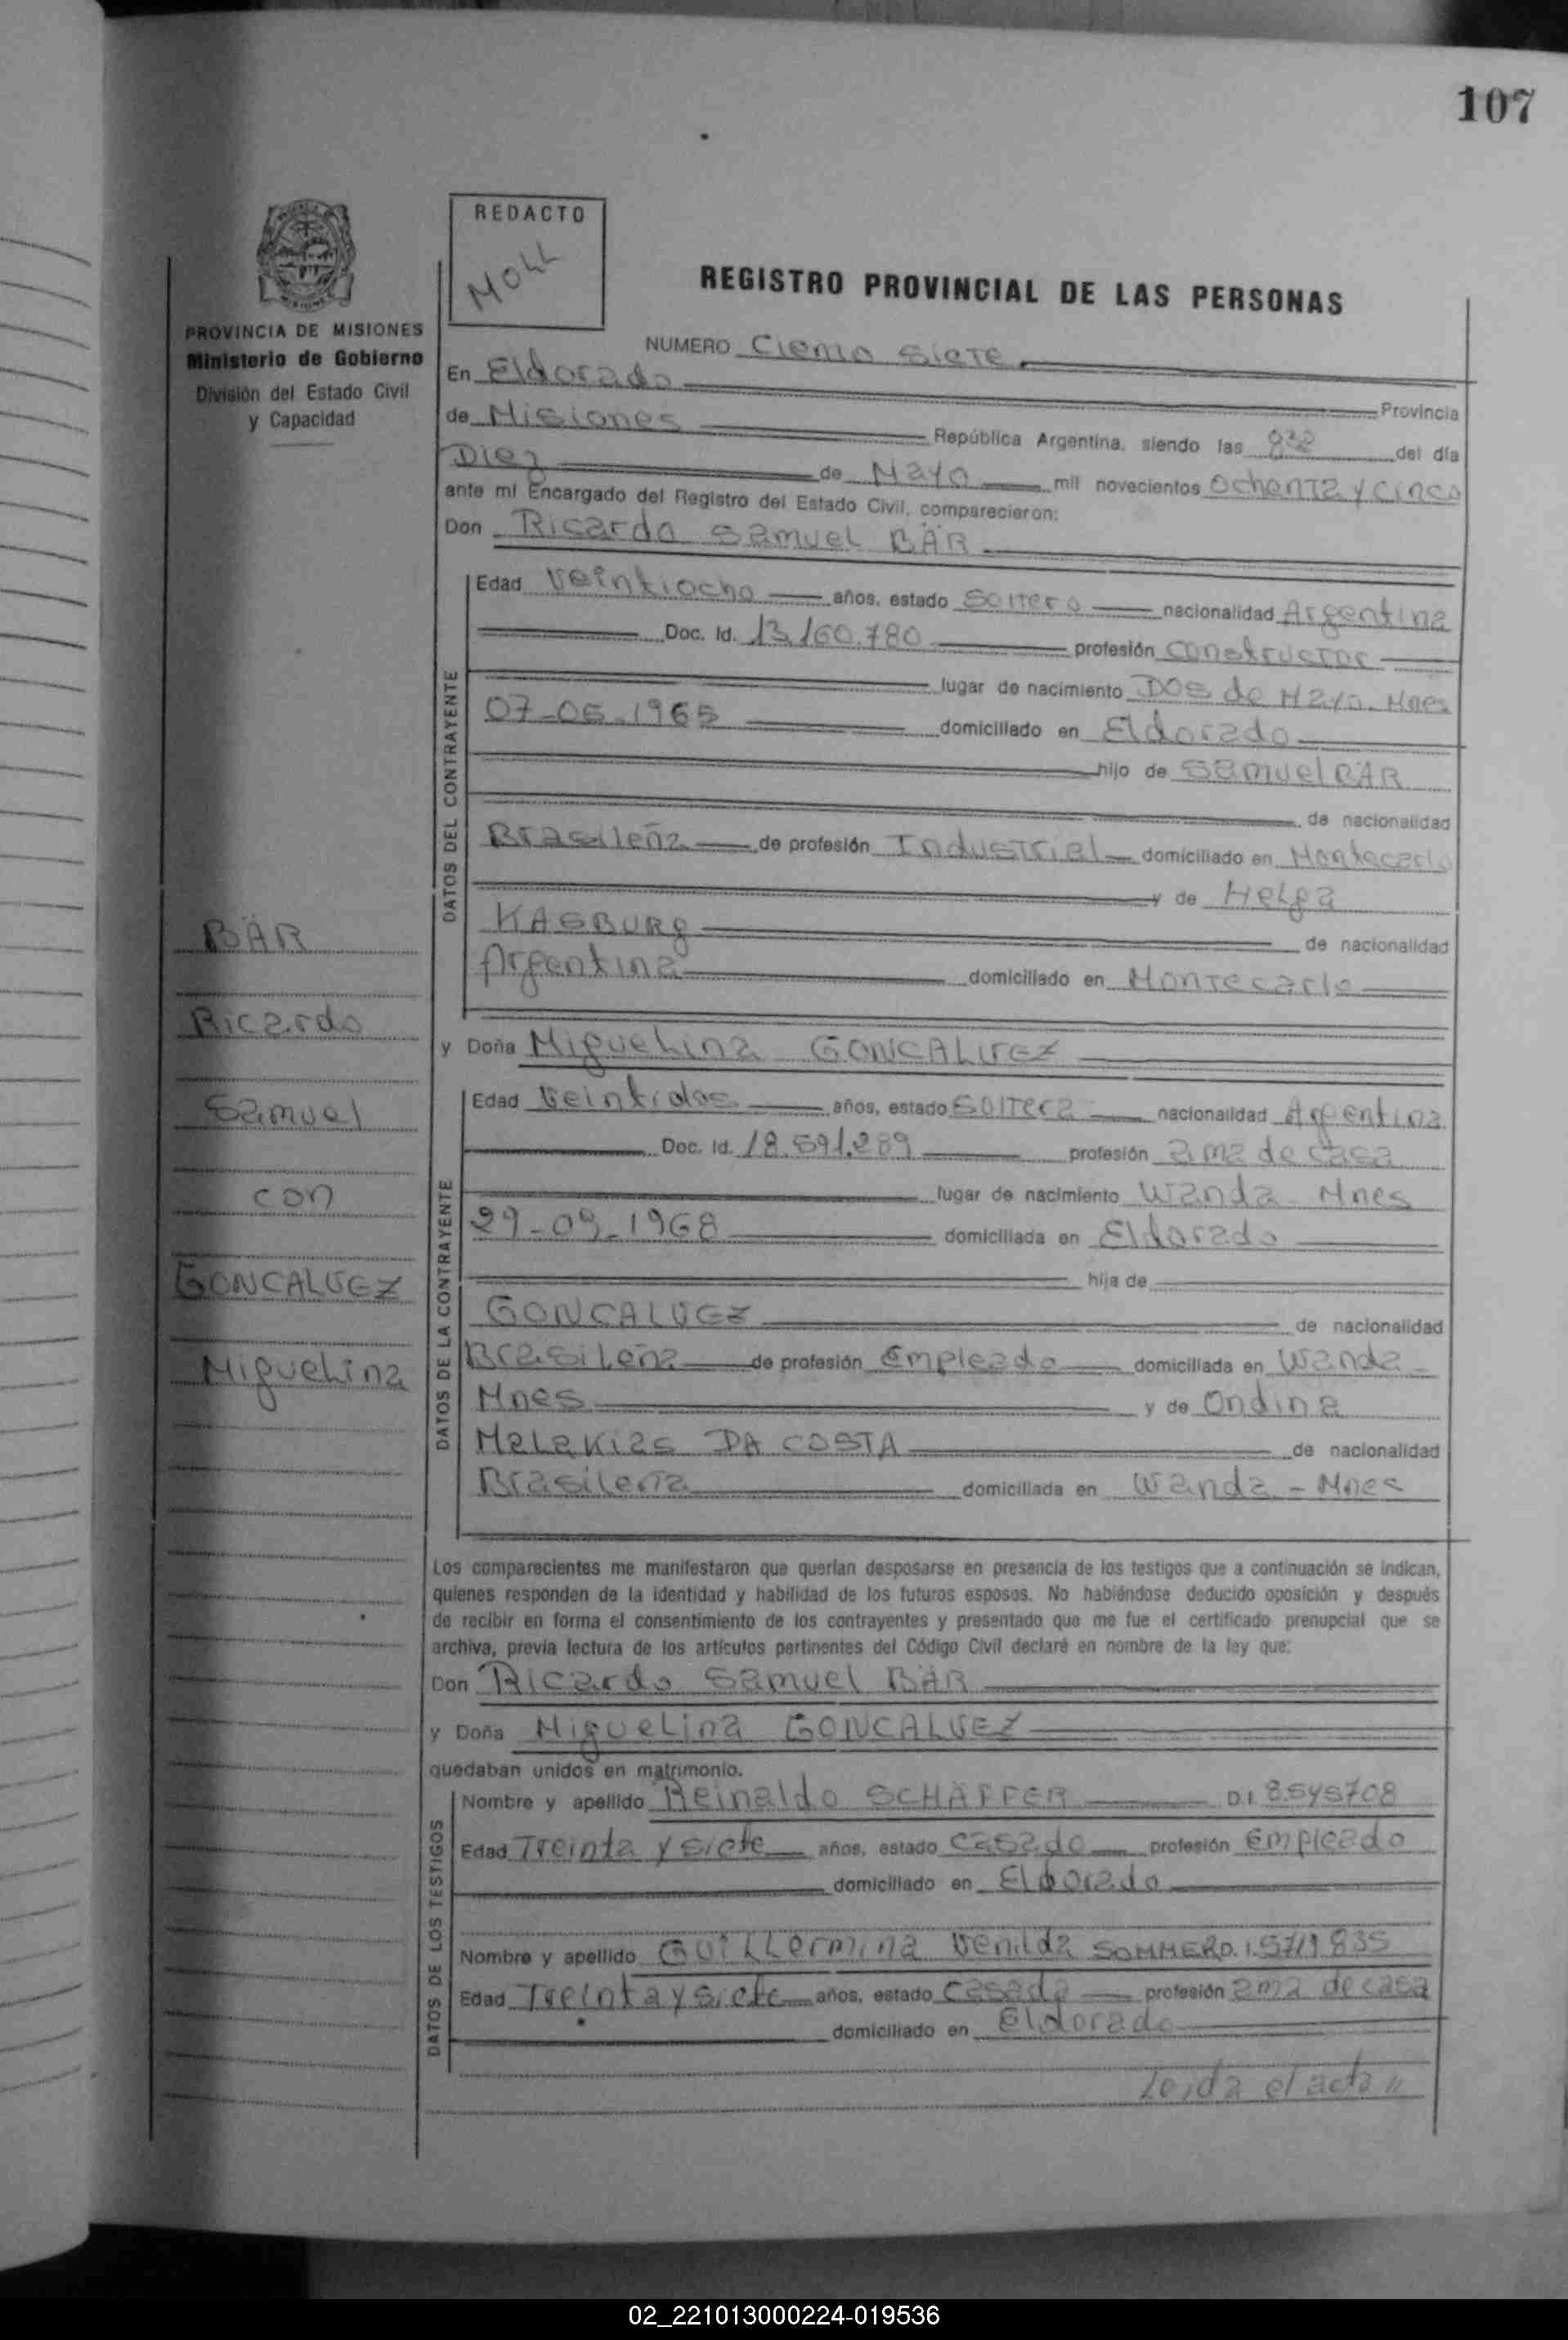 107
REDACTO
MOLL
PROVINCIA DE MISIONES
Ministerio de Gobierno
División del Estado Civil
y Capacidad
REGISTRO PROVINCIAL DE LAS PERSONAS
NUMERO Ciento Siete
En Eldorado
Provincia
de Misiones República Argentina, siendo las 8 30 del día
Diez de Mayo mil novecientos Ochenta y cinco
ante mi Encargado del Registro del Estado Civil, comparecieron:
Don Ricardo Samuel BÄR
DATOS DEL CONTRAYENTE
Edad Veintiocho años, estado Soltero nacionalidad Argentina
Doc. Id. 13.160.780 profesión constructor
lugar de nacimiento DOS de Mayo. Mnes
domiciliado en Eldorado
hijo de Samuel BÄR
de nacionalidad
Brasileña de profesión Industrial domiciliado en Montecarlo
y de Helga
KASBURg de nacionalidad
Argentina domiciliado en Montecarlo
y Doña Miguelina GONCALVEZ
DATOS DE LA CONTRAYENTE
Edad Veintidos años, estado Soltera nacionalidad Argentina
Doc. Id. 18.591.289 profesión ama de casa
lugar de nacimiento Wanda Mnes
29-09-1968 domiciliada en Eldorado
hija de
GONCALVEZ de nacionalidad
Brasileña de profesión Empleado domiciliada en Wanda
Mnes y de Ondina
Melekias DA COSTA de nacionalidad
Brasileña domiciliada en Wanda - Mnes
BÄR
Ricardo
Samuel
con
GONCALVEZ
Miguelina
Los comparecientes me manifestaron que querían desposarse en presencia de los testigos que a continuación se indican,
quienes responden de la identidad y habilidad de los futuros esposos. No habiéndose deducido oposición y después
de recibir en forma el consentimiento de los contrayentes y presentado que me fue el certificado prenupcial que se
archiva, previa lectura de los artículos pertinentes del Código Civil declaré en nombre de la ley que:
Don Ricardo Samuel BÄR
y Doña Miguelina GONCALVEZ
quedaban unidos en matrimonio.
DATOS DE LOS TESTIGOS
Nombre y apellido Reinaldo SCHÄFFER D.I. 8.545708
Edad Treinta y siete años, estado casado profesión Empleado
domiciliado en Eldorado
Nombre y apellido Guillermina Venilda SOMMER D.I. 5719835
Edad Treinta y siete años, estado casada profesión ama de casa
domiciliado en Eldorado
Leida el acta //
02_221013000224-019536